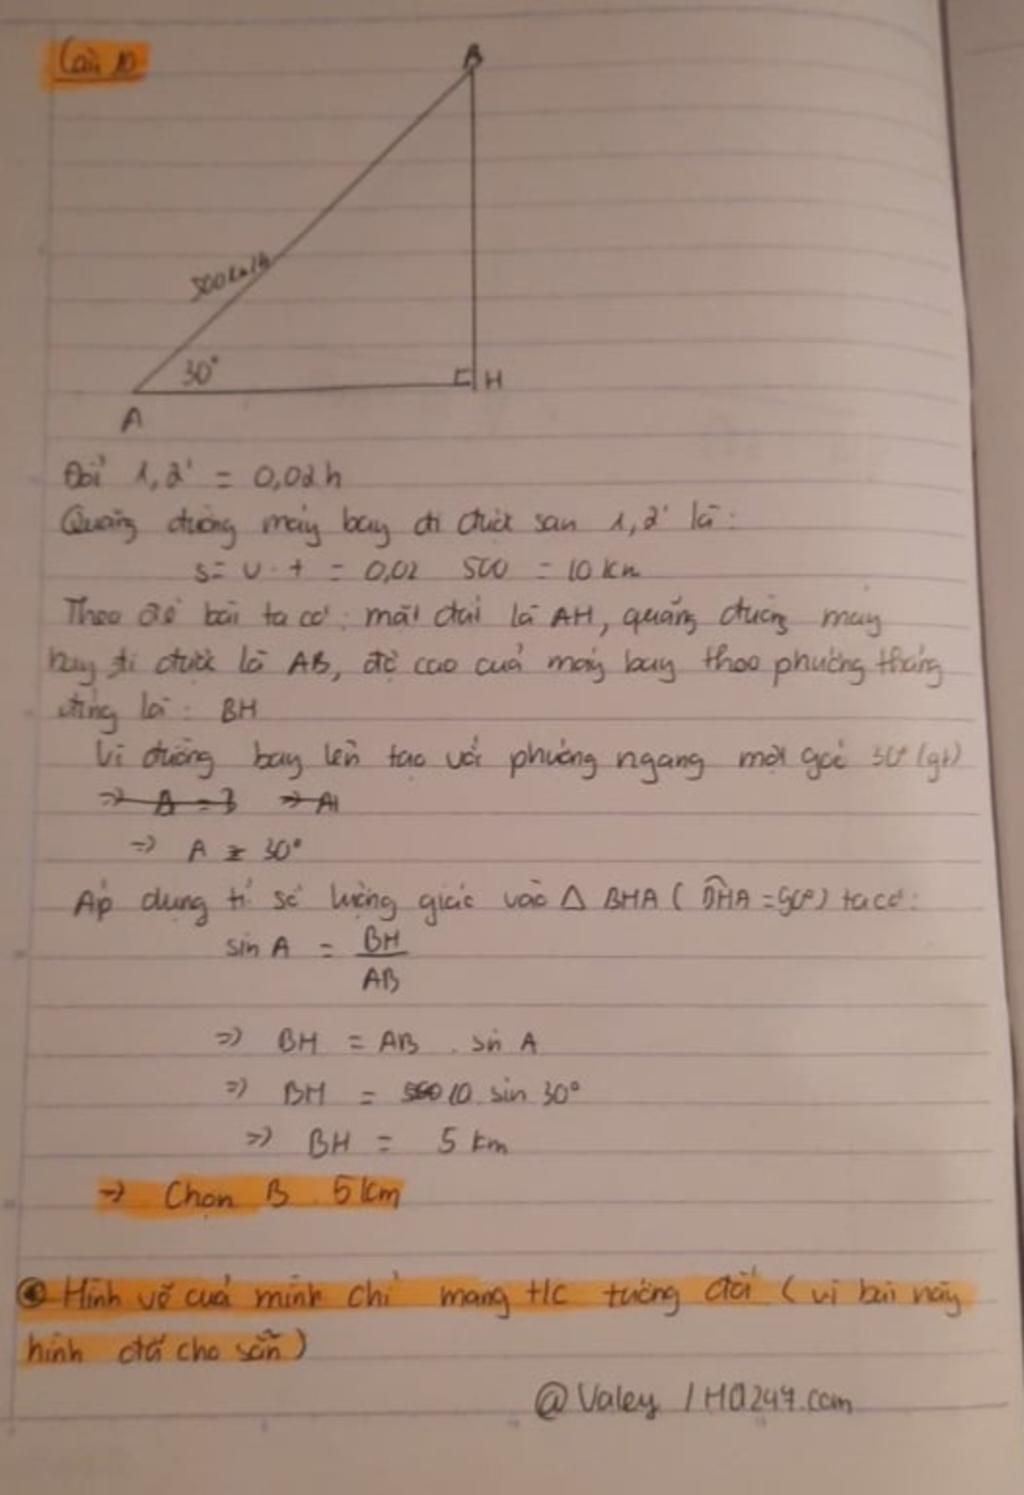 Câu 10
B
500km/h
30°
H
A
Đổi 1,2' = 0,02h
Quãng đường máy bay đi được sau 1,2' là:
s= v . t = 0,02 500 = 10 km
Theo đề bài ta có: mặt đất là AH, quãng đường máy
bay đi được là AB, độ cao của máy bay theo phương thẳng
đứng là: BH
Vì đường bay lên tạo với phương ngang một góc 30° (gt)
=> A = 3 => A
=> A = 30°
Áp dụng tỉ số lượng giác vào Δ BHA ( BHA = 90°) ta có:
sin A = BH
AB
=> BH = AB . sin A
=> BH = 10 sin 30°
=> BH = 5 km
=> Chọn B. 5km
Hình vẽ của mình chỉ mang t/c tương đối ( vì bài này
hình đã cho sẵn)
@Valey / HD247.com